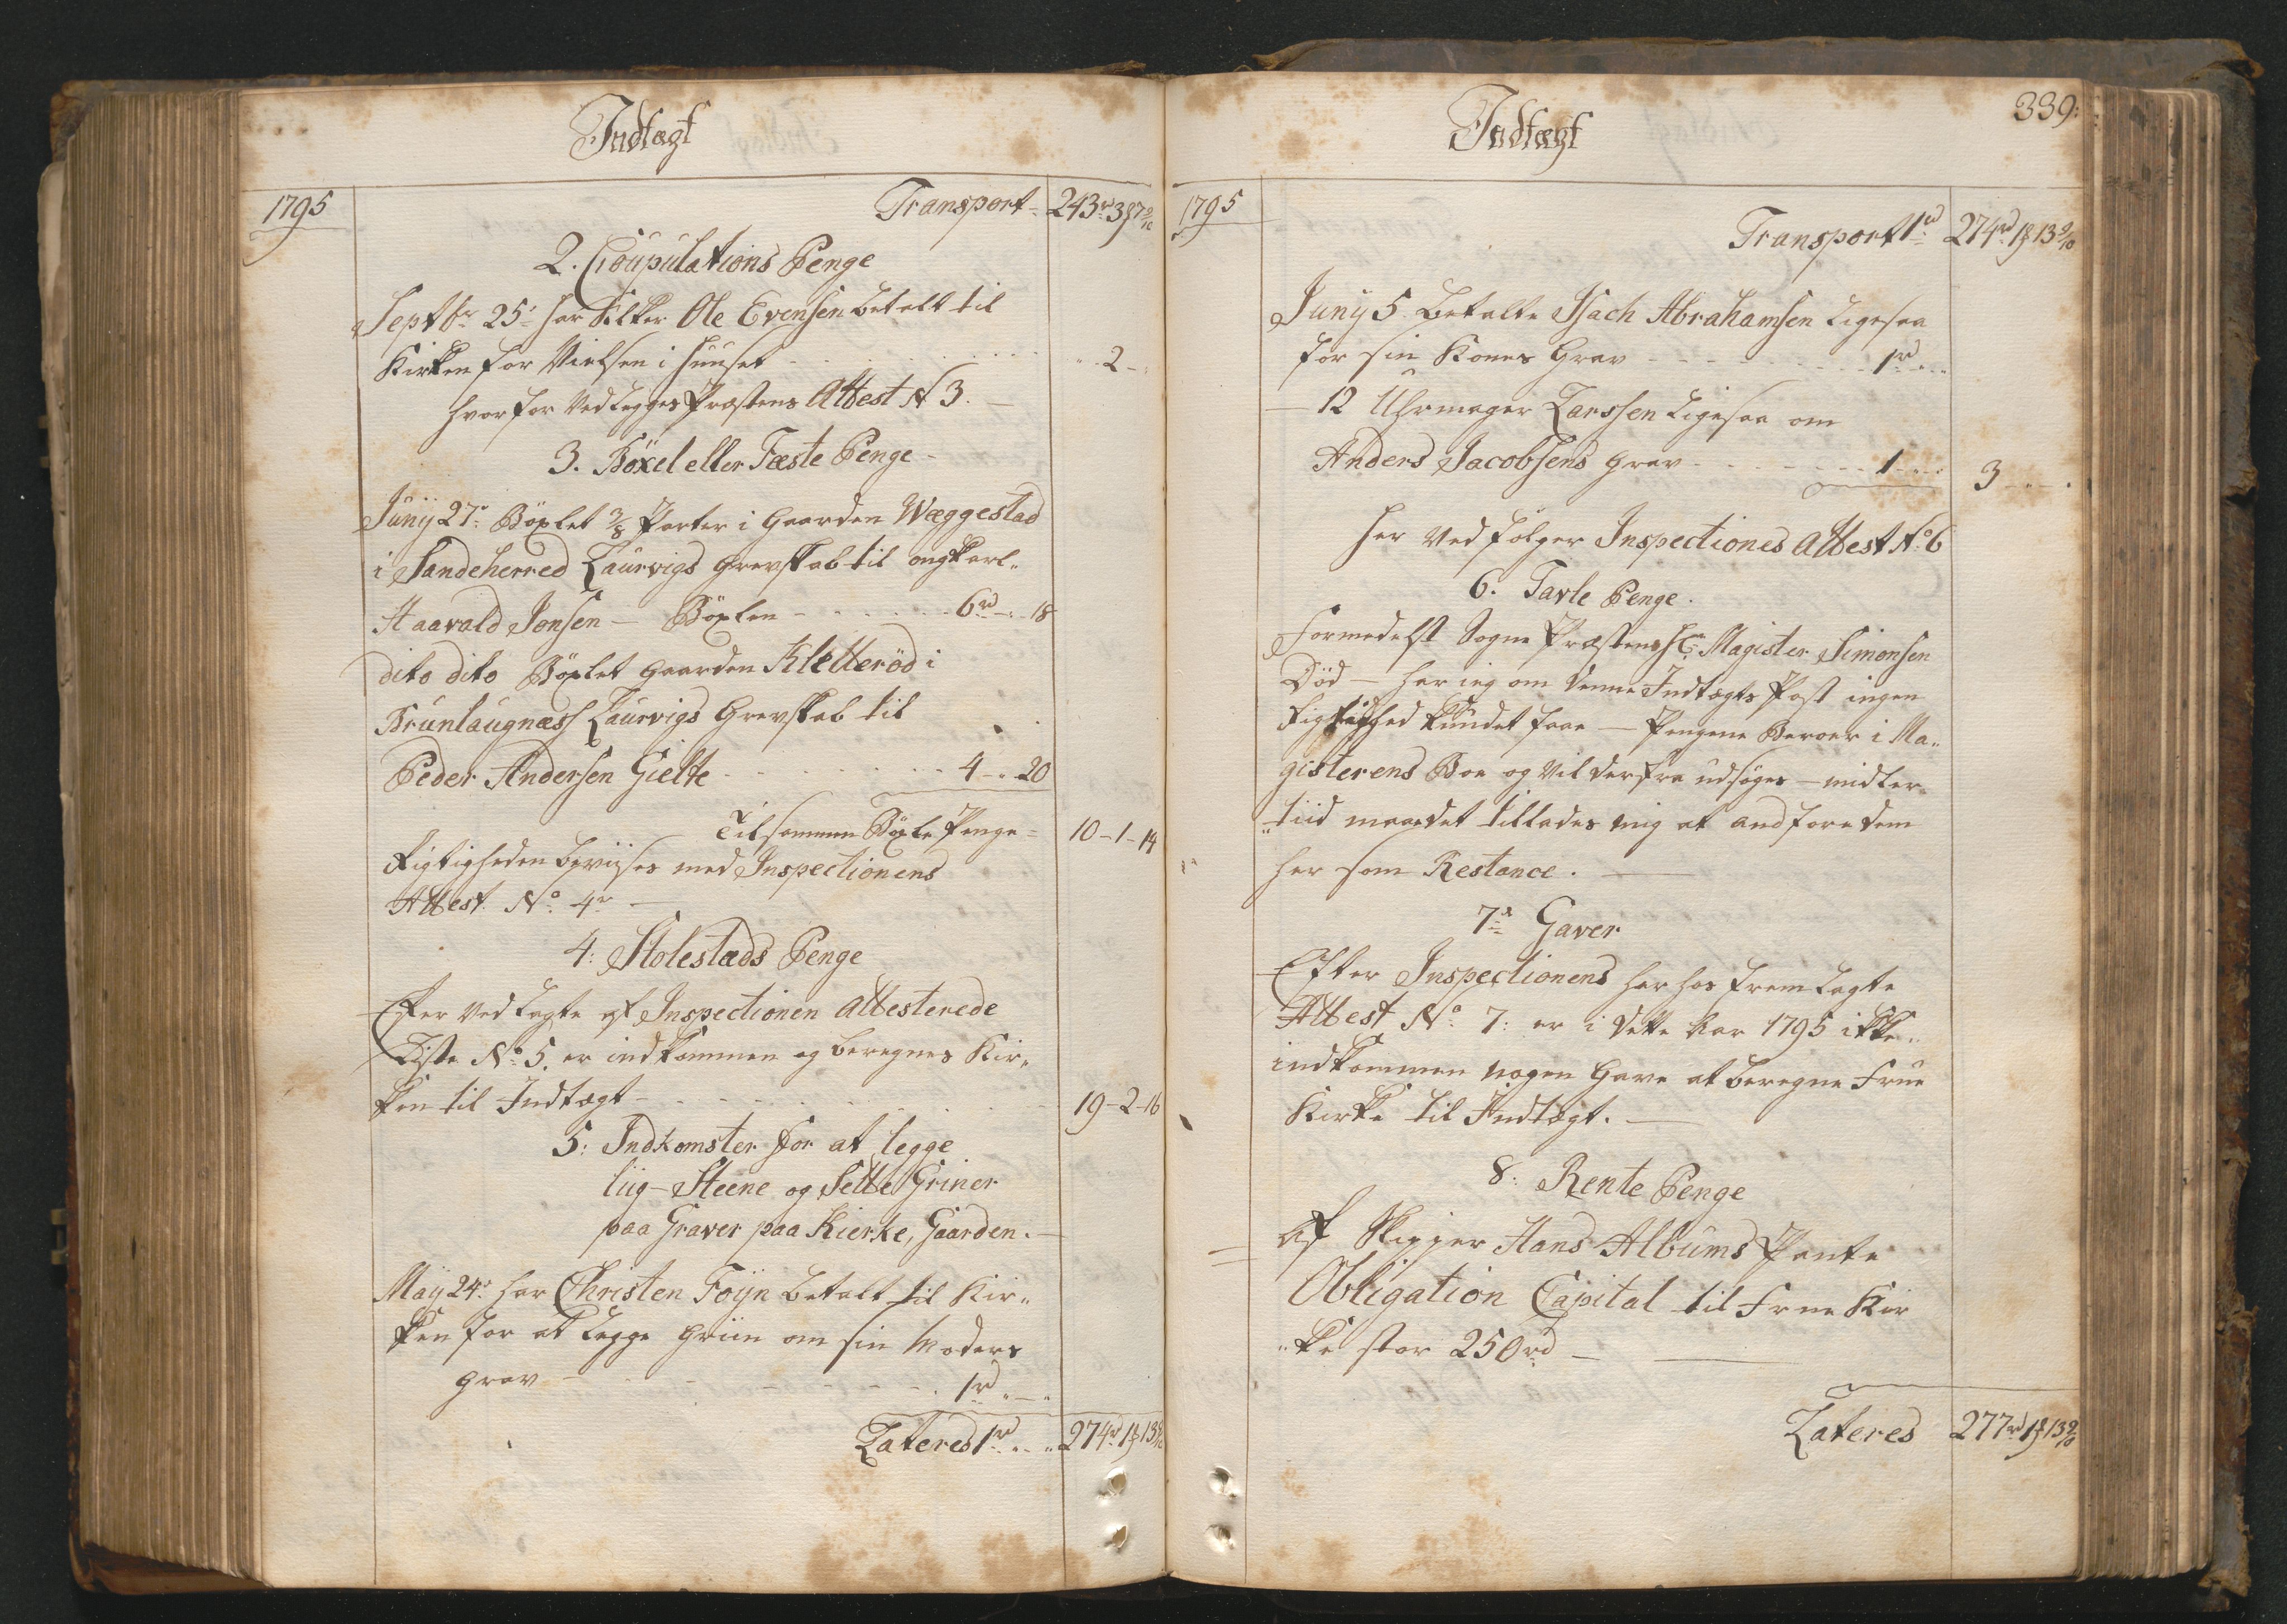 Indtægt
1795
Transport 243rd 3ß 7 9/10
2. Coupulations Penge
Septbr 25. har Kl. Ole Evensen betalt til
Kirken for Vielsen i Huuset - - - 2 -
hvorfor vedlegges Præstens Attest N 3.
3. Böxel eller Fæste Penge -
Juny 27. Böxlet 3/8 Parter i Gaarden Wæggestad
i Sandeherred Laurvigs Grevskab til ungkarl„
Haavald Jonsen - Böxlen - - - 6rd - 18
dito dito Böxlet Gaarden Kletteröd i
Brunlaugnæss Laurvigs Grevskab til
Peder Andersen Gielte - - - 4 - 20
Tilsammen Böxle Penge = 10 - 1 - 14
Rigtigheden beviises med Inspectionens
Attest No 4
4: Stolestads Penge
Efter vedlagte af Inspectionen Attesterede
Liste No 5. er indkommen og beregnes Kir„
ken til Indtægt - - - 19 - 2 - 16
5: Indkomster for at legge
Liig-Steene og Sette Griner
paa Graver paa Kierke, Gaarden.
May 24. har Christen Foÿn betalt til Kir„
ken for at legge Griin om sin Moders
Grav - - - 1rd „ - „
Lateres 1rd „ „ 274rd 1ß 13 9/10
Indtægt
339:
1795
Transport 1rd 274rd 1ß 13 9/10
Juny 5. betalte Isach Abrahamsen Ligesaa
for sin Kones Grav - - - 1rd „ „
- 12 Uhrmager Larssen Ligesaa om
Anders Jacobsens Grav - - - 1 - „ 3 - „ - „
Her ved følger Inspectiones Attest No 6
6. Tavle Penge.
Formedelst Sogne Præstens Hr. Magister Simonsen
Död - har jeg om denne Indtægts Post ingen
Rigtighed kundet faae - Pengene beroer i Ma„
gisterens Boe og vil derfra udsöges - midler„
„tiid maae det tillades mig at andføre dem
her som Restance.
7de Gaver
Efter Inspectionens her hos fremlagte
Attest No 7: er i dette Aar 1795 ikke„
indkommen nogen Gave at beregne Frue
Kirke til Indtægt.
8: Rente Penge
Af Skipper Hans Albums Pante
Obligation Capital til Frue Kir
„ke stor 250rd -
Lateres 277rd 1ß 13 9/10